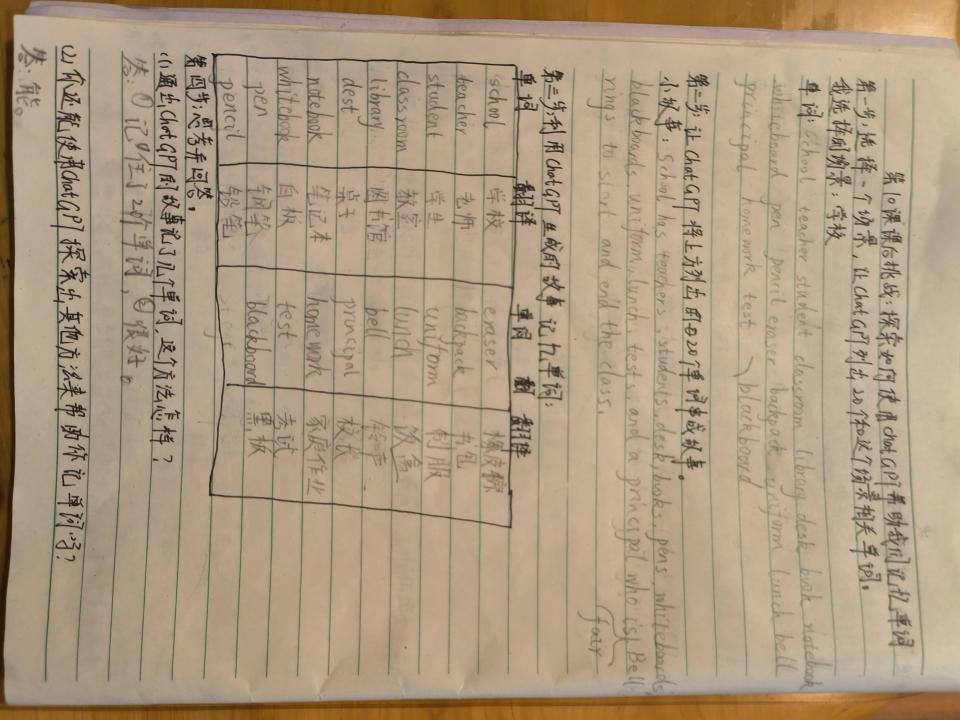 第10课课后挑战:探索如何使用chatGPT帮助我们记忆单词
第一步:选择一个场景,让ChatGPT列出20个和这个场景相关单词。
我选择的场景:学校
单词:school teacher student classroom library desk book notebook
whiteboard pen pencil eraser backpack uniform lunch bell
principal homework test blackboard
第二步:让ChatGPT将上方列出的20个单词串成故事。
小故事:school has teachers, students, desk, books, pens, whiteboards,
blackboards, uniform, lunch, tests, and a principal who is fair Bell
rings to start and end the class
第三步:利用ChatGPT生成的故事记忆单词:
单词 翻译 单词 翻 翻译
school 学校 eraser 橡皮擦
teacher 老师 backpack 书包
student 学生 uniform 制服
classroom 教室 lunch 饭盒
library 图书馆 bell 铃声
dest 桌子 principal 校长
notebook 笔记本 homework 家庭作业
whitebook 白板 test 考试
pen 钢笔 blackboard 黑板
pencil 铅笔
第四步:思考并回答。
(1)通过ChatGPT的故事记了几个单词,这个方法怎样?
答:①记住了20个单词,②很好。
(2)你还能使用ChatGPT探索出其他方法来帮助你记单词吗?
答:能。